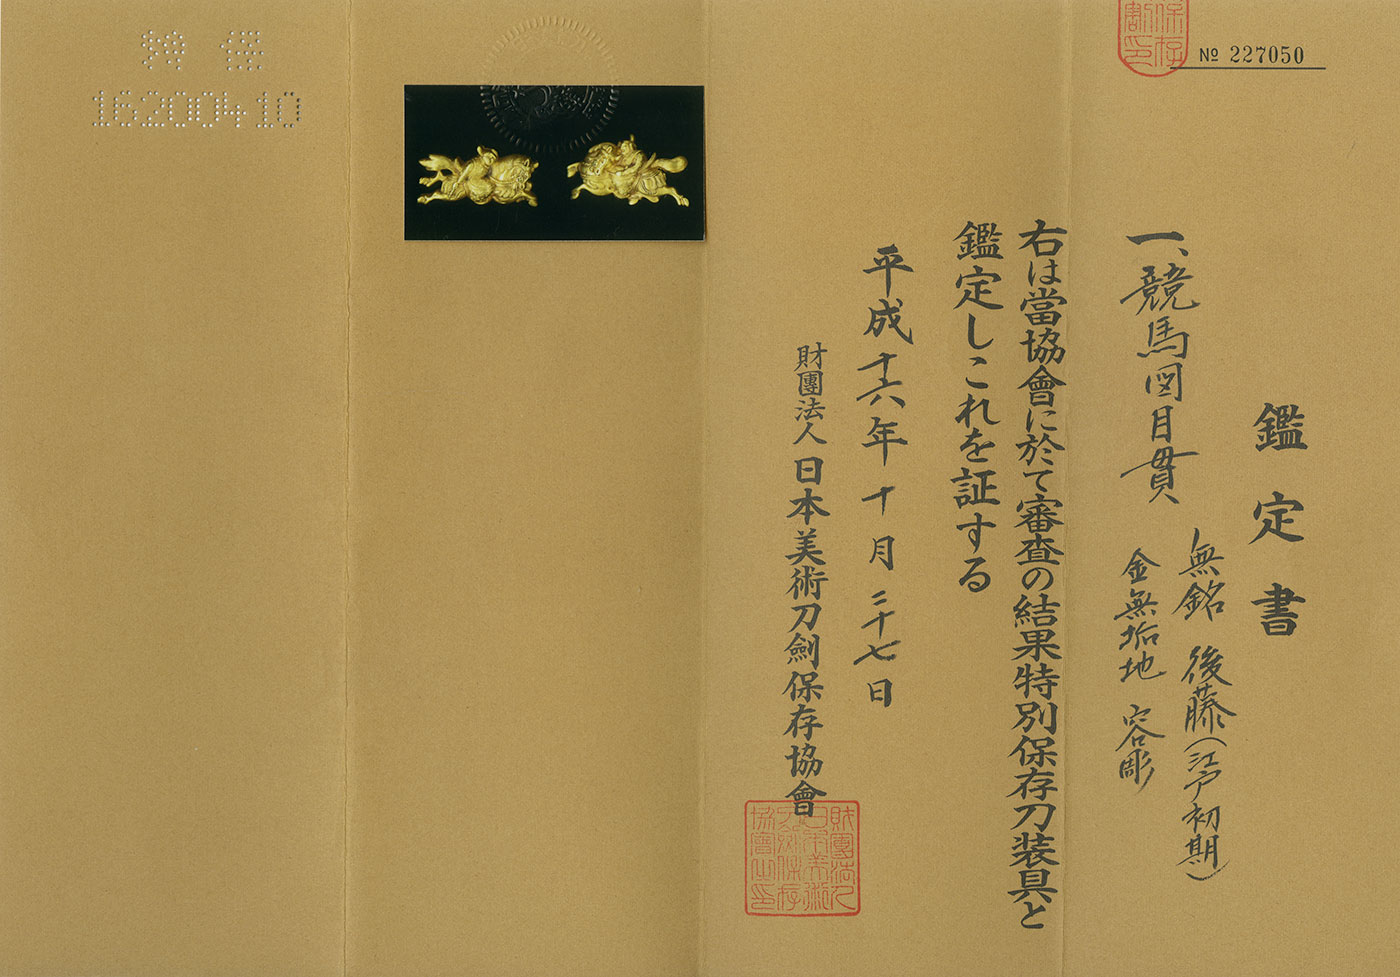 鑑定書
一、競馬図目貫
無銘 後藤(江戸初期)
金無垢地 容彫
右は當協會に於て審査の結果特別保存刀装具と
鑑定しこれを証する
平成十六年十月二十七日
財團法人 日本美術刀劍保存協會
№ 227050
保存
割印
財團法人
日本美術
刀劍保存
協會之印
16200410